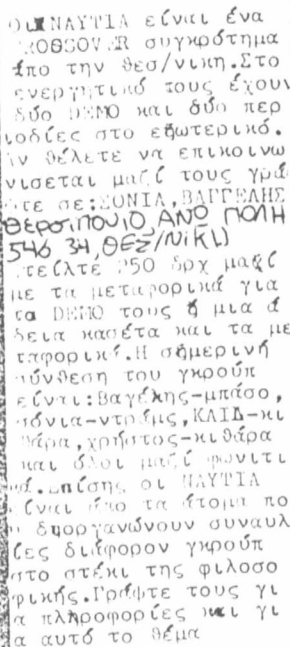 Οι ΝΑΥΤΙΑ είναι ένα
CROSSOVER συγκρότημα
άπο την θεσ/νικη.Στο
ενεργητικό τους έχουν
δύο DEMO και δύο περ
ιοδίες στο εξωτερικό.
Αν θέλετε να επικοινω
νισεται μαζί τους γρά
τε σε:ΣΟΝΙΑ,ΒΑΓΓΕΛΗΣ
Θερσιπου 10 ΑΝΟ ΠΟΛΗ
546 34, ΘΕΣ/ΝίΚΗ)
τείλτε 250 δρχ μαζί
με τα μεταφορικά για
τα DEMO τους ή μια ά
δεια κασέτα και τα με
ταφορικά.Η σήμερινή
σύνθεση του γκρούπ
είναι:Βαγέλης-μπάσο,
σόνια-ντράμς,ΚΛΙΔ-κι
θάρα,χρήστος-κιθάρα
και όλοι μαζί φωνιτι
κά.Επίσης οι ΝΑΥΤΙΑ
είναι άπο τα άτομα πο
υ διοργανώνουν συναυλ
ίες διάφορον γκρούπ
στο στέκι της φιλοσο
φικής.Γράφτε τους γι
α πληροφορίες και γι
α αυτό το θέμα